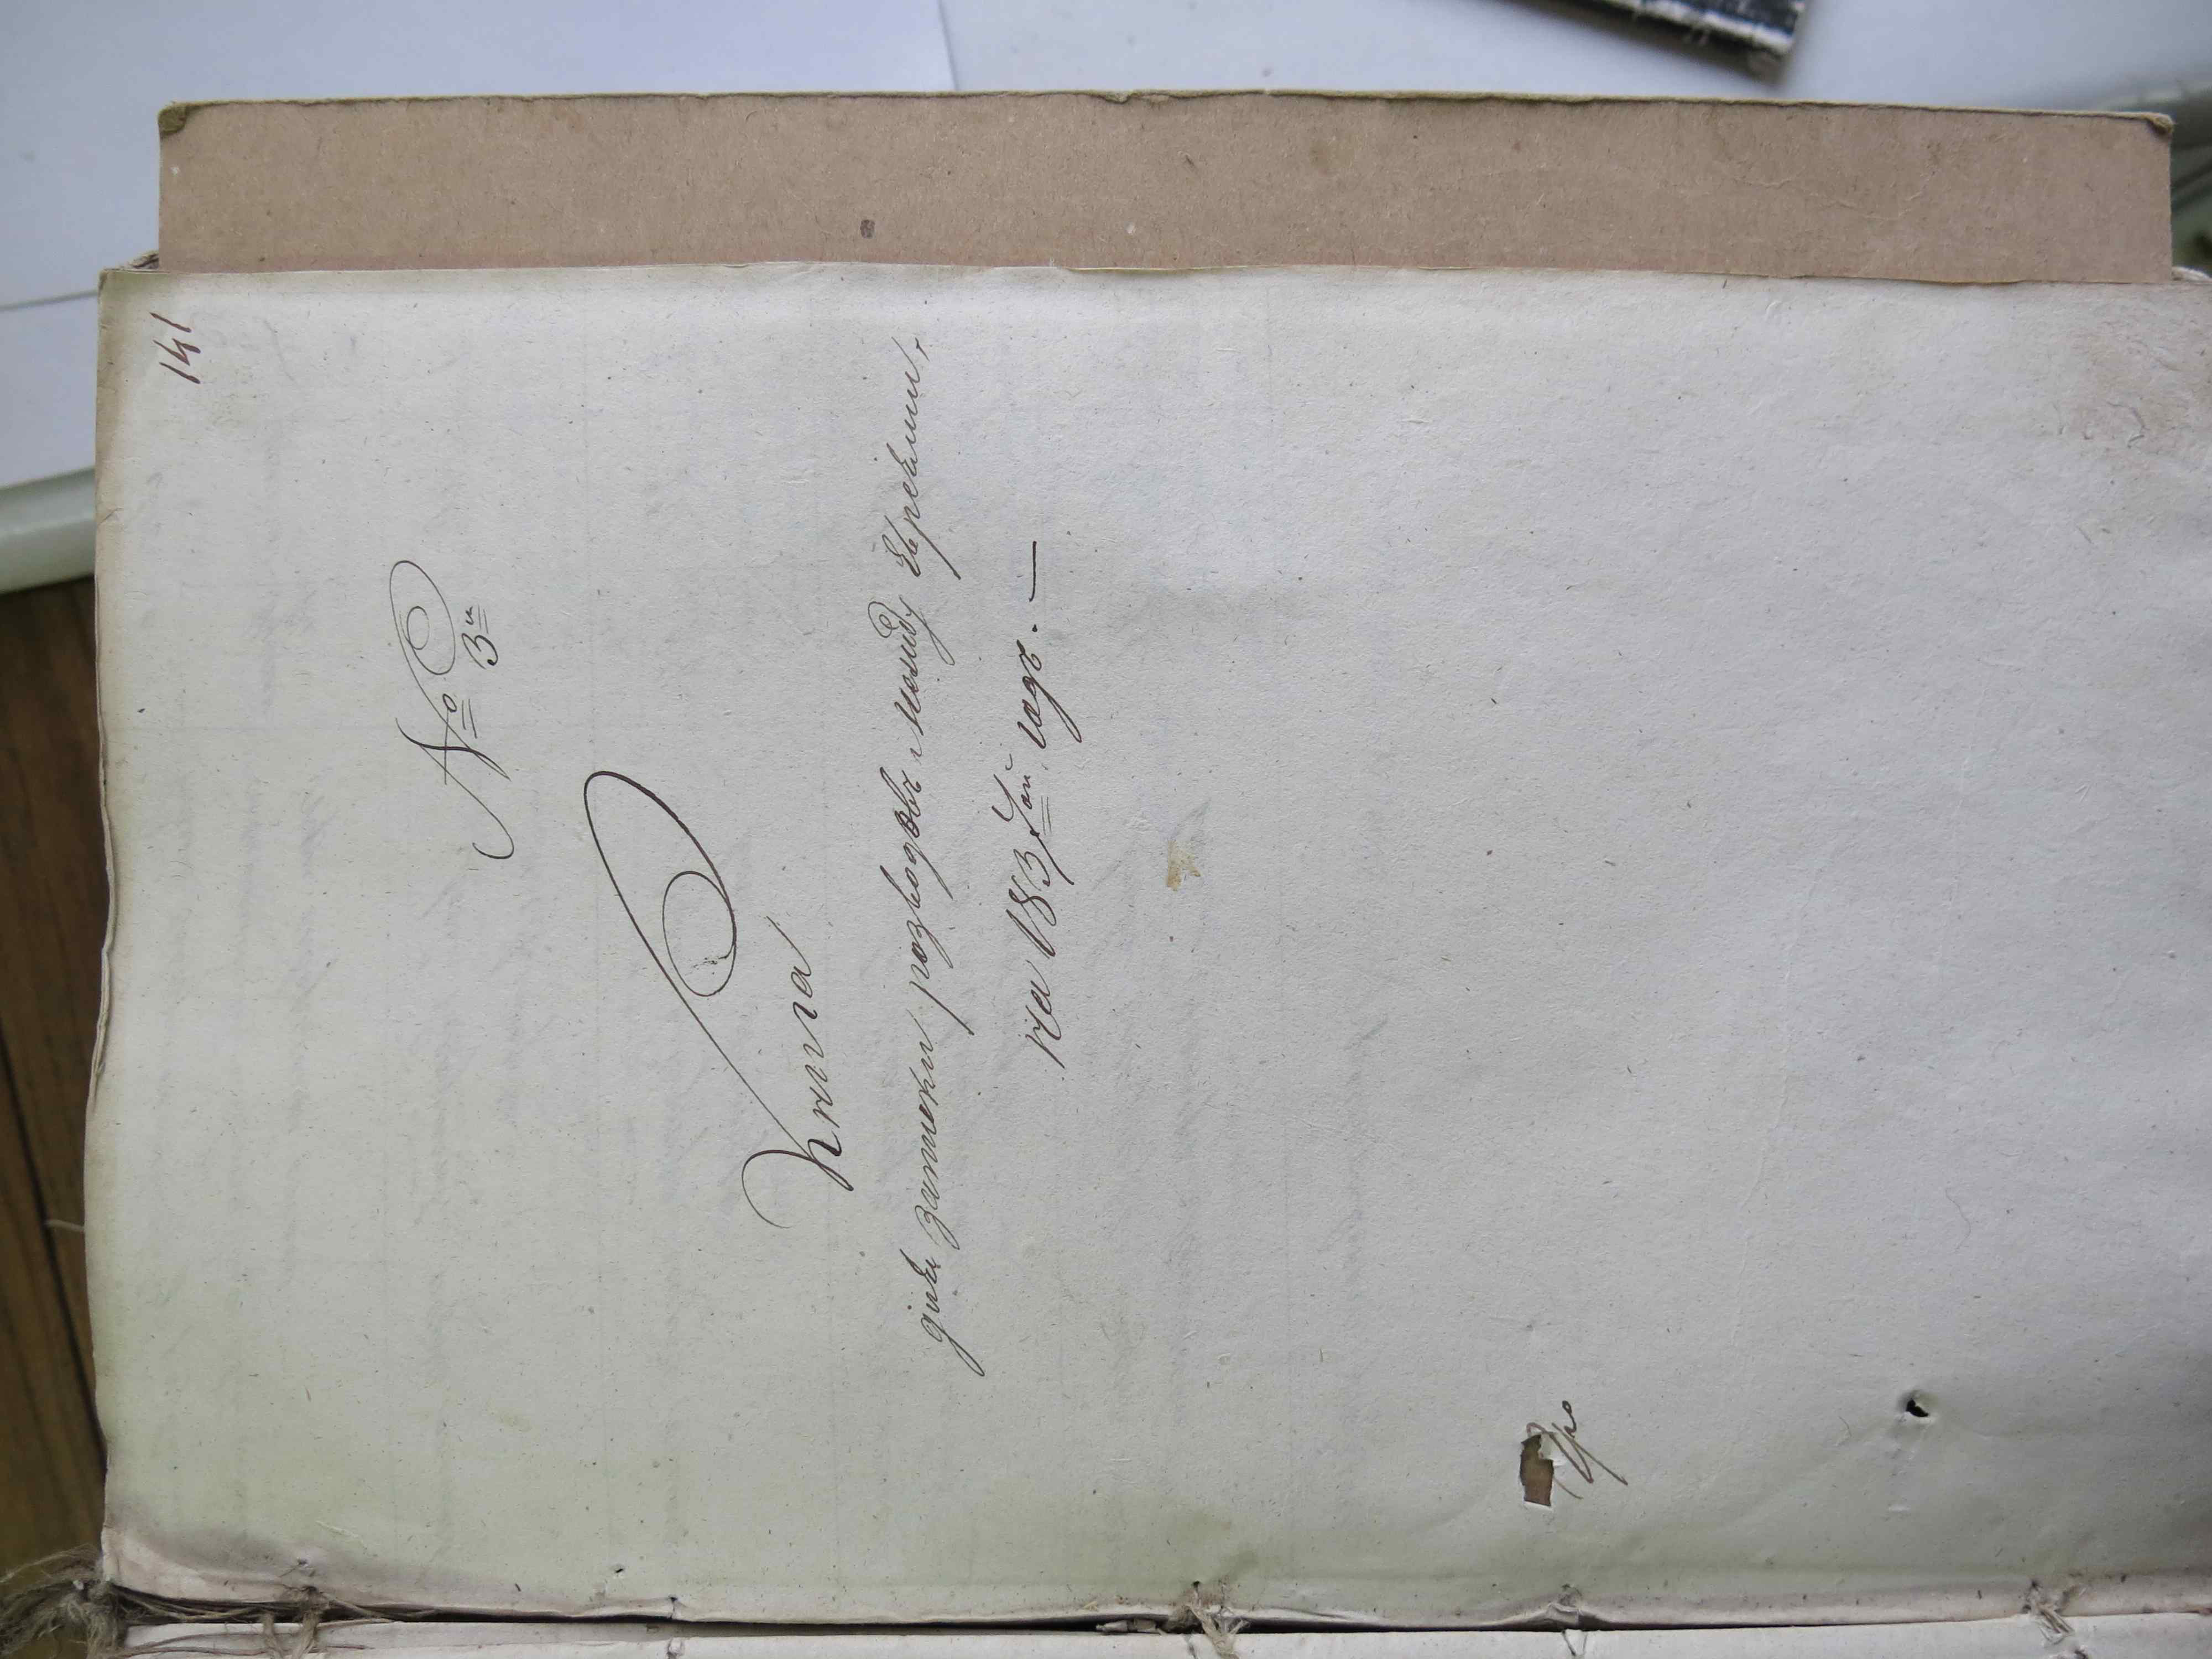 141
№ 3й
Книга
для записки разводовъ между Евреями,
на 1837ой годъ. —